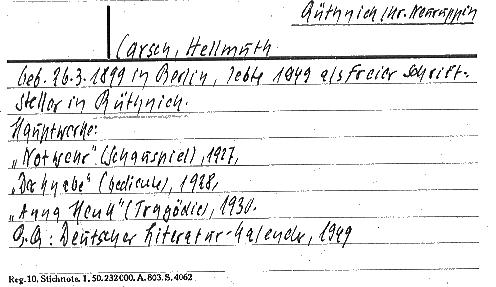 Rüthnich, Kr. Neuruppin
Carsch, Hellmuth
Geb. 26.3.1899 in Berlin, lebte 1949 als freier Schrift-
steller in Rüthnich.
Hauptwerke:
„Notwehr" (Schauspiel), 1927,
„Der Knabe" (Gedichte), 1928,
„Anna (Tragödie), 1930.
Deutscher Literatur-Kalender, 1949
Reg. 10. Stichnote. 1. 50. 232000. A. 803. S. 4062